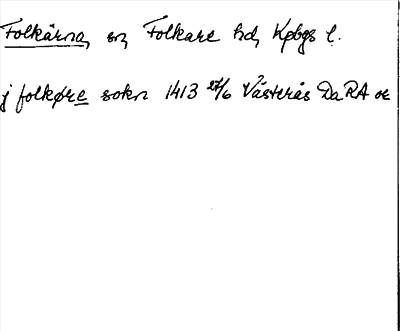 Folkärna, sn, Folkare hd, Kpbgs l.
j folkøre sokn 1413 27/6 Västerås DaRA or